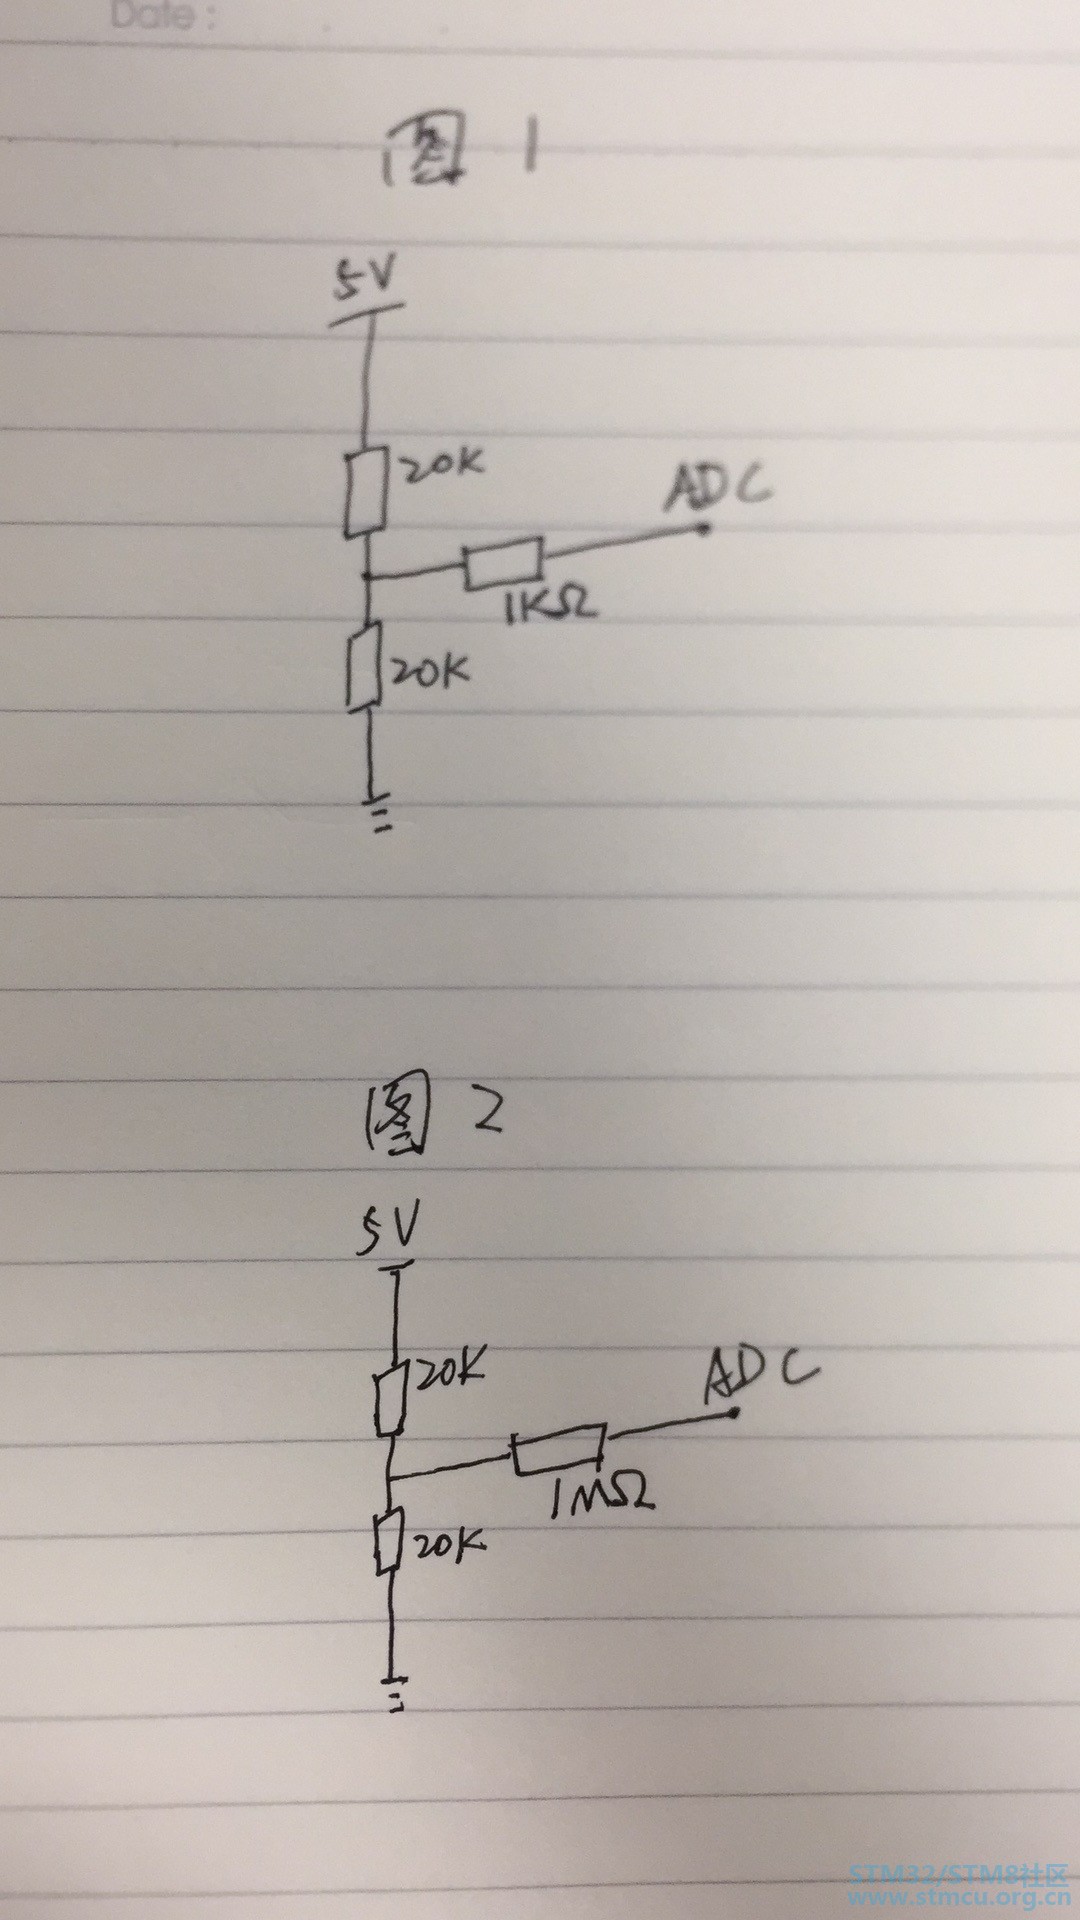 Date :
图 1
5V
20K
ADC
1KΩ
20K
图 2
5V
20K
ADC
1MΩ
20K
STM32/STM8社区
www.stmcu.org.cn